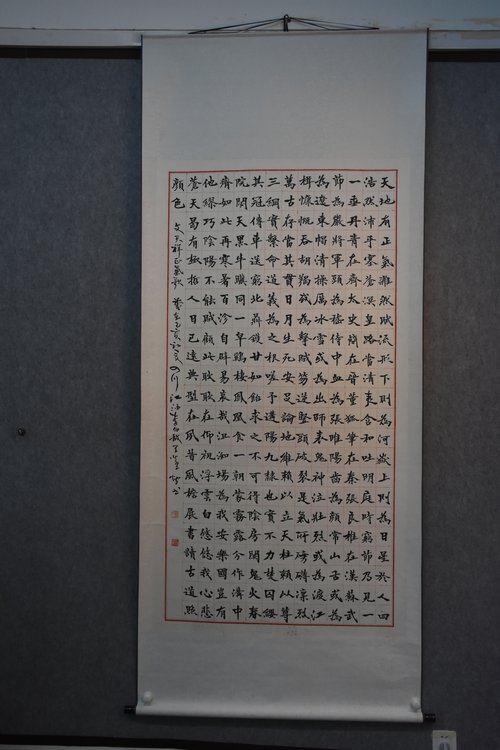 天地有正氣雜然賦流形下則為河嶽上則為日星於人曰
浩然沛乎塞蒼溟皇路當清夷含和吐明庭時窮節乃見一
一垂丹青在齊太史簡在晉董狐筆在秦張良椎在漢蘇武
節為嚴將軍頭為嵇侍中血為張睢陽齒為顏常山舌或為
為遼東帽清操厲冰雪或為出師表鬼神泣壯烈或為渡江
楫慷慨吞胡羯或為擊賊笏逆豎頭破裂是氣所磅礴凜烈
萬古存當其貫日月生死安足論地維賴以立天柱賴以尊
三綱實繫命道義為之根嗟予遘陽九隸也實不力楚囚纓
其冠傳車送窮北鼎鑊甘如飴求之不可得陰房闃鬼火春
院閟天黑牛驥同一皂雞棲鳳凰食一朝蒙霧露分作溝中
瘠如此再寒暑百沴自辟易哀哉沮洳場為我安樂國豈有
他繆巧陰陽不能賊顧此耿耿在仰視浮雲白悠悠我心悲
蒼天曷有極哲人日已遠典型在夙昔風檐展書讀古道照
顏色 文天祥正氣歌